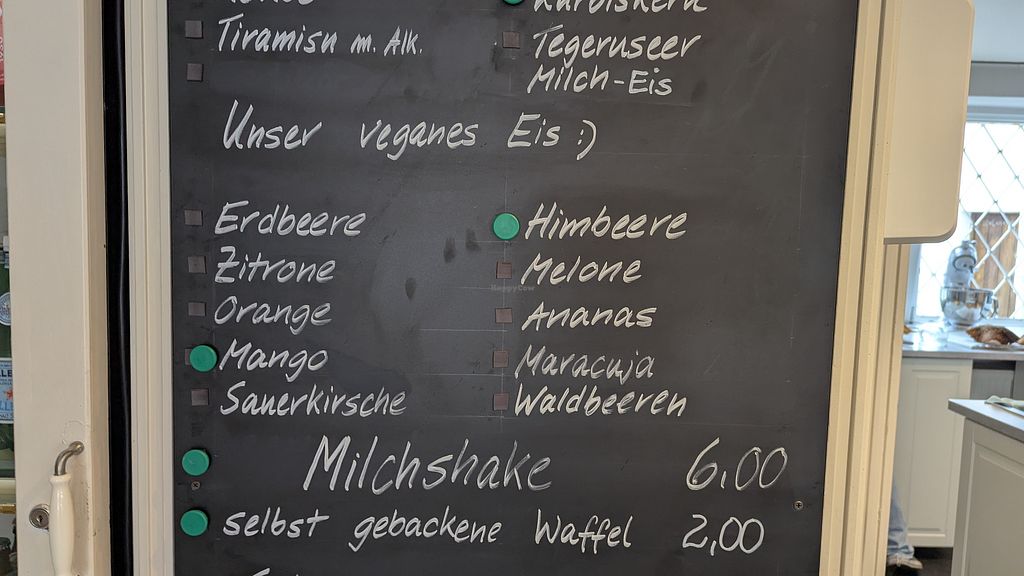 Kürbiskern
Tiramisu m. Alk.
Tegernseer
Milch-Eis
Unser veganes Eis :)
Erdbeere
Himbeere
Zitrone
Melone
Orange
Ananas
Mango
Maracuja
Sauerkirsche
Waldbeeren
Milchshake 6,00
selbst gebackene Waffel 2,00